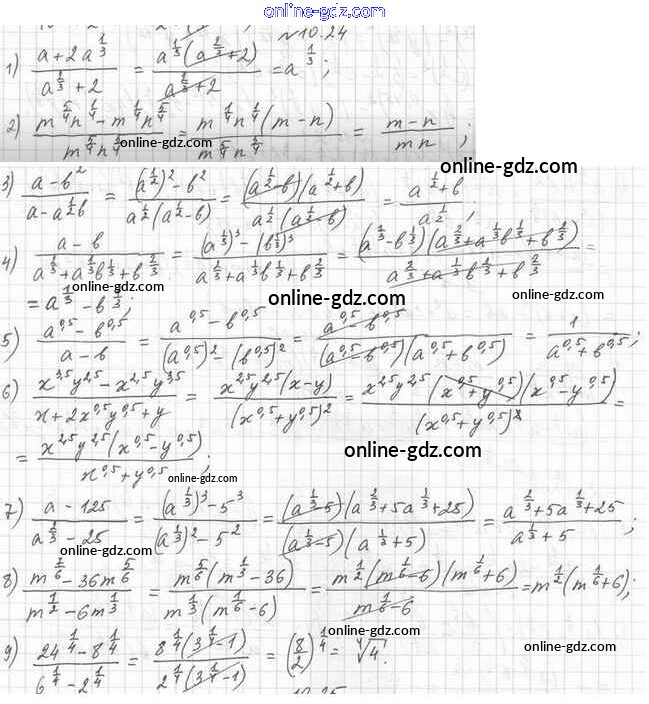 online-gdz.com
№10.24
1) (a+2a^(1/3))/(a^(2/3)+2) = (a^(1/3)(a^(2/3)+2))/(a^(2/3)+2) = a^(1/3);
2) (m^(5/4)n^(1/4)-m^(1/4)n^(5/4))/(m^(5/4)n^(5/4)) = (m^(1/4)n^(1/4)(m-n))/(m^(5/4)n^(5/4)) = (m-n)/(mn);
online-gdz.com
online-gdz.com
3) (a-b^2)/(a-a^(1/2)b) = ((a^(1/2))^2-b^2)/(a^(1/2)(a^(1/2)-b)) = ((a^(1/2)-b)(a^(1/2)+b))/(a^(1/2)(a^(1/2)-b)) = (a^(1/2)+b)/(a^(1/2));
online-gdz.com
4) (a-b)/(a^(2/3)+a^(1/3)b^(1/3)+b^(2/3)) = ((a^(1/3))^3-(b^(1/3))^3)/(a^(2/3)+a^(1/3)b^(1/3)+b^(2/3)) = ((a^(1/3)-b^(1/3))(a^(2/3)+a^(1/3)b^(1/3)+b^(2/3)))/(a^(2/3)+a^(1/3)b^(1/3)+b^(2/3)) =
online-gdz.com
online-gdz.com
online-gdz.com
= a^(1/3)-b^(1/3);
5) (a^0,5-b^0,5)/(a-b) = (a^0,5-b^0,5)/((a^0,5)^2-(b^0,5)^2) = (a^0,5-b^0,5)/((a^0,5-b^0,5)(a^0,5+b^0,5)) = 1/(a^0,5+b^0,5);
6) (x^3,5y^2,5-x^2,5y^3,5)/(x+2x^0,5y^0,5+y) = (x^2,5y^2,5(x-y))/((x^0,5+y^0,5)^2) = (x^2,5y^2,5(x^0,5+y^0,5)(x^0,5-y^0,5))/((x^0,5+y^0,5)^2) =
= (x^2,5y^2,5(x^0,5-y^0,5))/(x^0,5+y^0,5);
online-gdz.com
online-gdz.com
7) (a-125)/(a^(2/3)-25) = ((a^(1/3))^3-5^3)/((a^(1/3))^2-5^2) = ((a^(1/3)-5)(a^(2/3)+5a^(1/3)+25))/((a^(1/3)-5)(a^(1/3)+5)) = (a^(2/3)+5a^(1/3)+25)/(a^(1/3)+5);
online-gdz.com
online-gdz.com
8) (m^(7/6)-36m^(5/6))/(m^(1/2)-6m^(1/3)) = (m^(5/6)(m^(1/3)-36))/(m^(1/3)(m^(1/6)-6)) = (m^(1/2)(m^(1/6)-6)(m^(1/6)+6))/(m^(1/6)-6) = m^(1/2)(m^(1/6)+6);
online-gdz.com
online-gdz.com
9) (24^(1/4)-8^(1/4))/(6^(1/4)-2^(1/4)) = (8^(1/4)(3^(1/4)-1))/(2^(1/4)(3^(1/4)-1)) = (8/2)^(1/4) = ∜4.